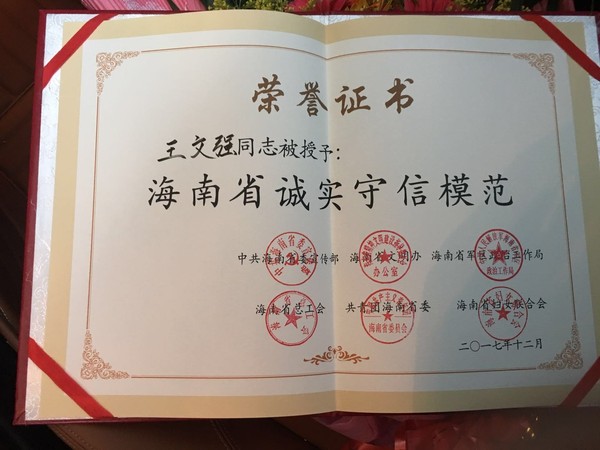 荣誉证书
王文强同志被授予：
海南省诚实守信模范
中共海南省委宣传部 海南省文明办 海南省军区政治工作局
办公室 政治工作局
海南省总工会 共青团海南省委 海南省妇女联合会
海南省委员会
二〇一七年十二月